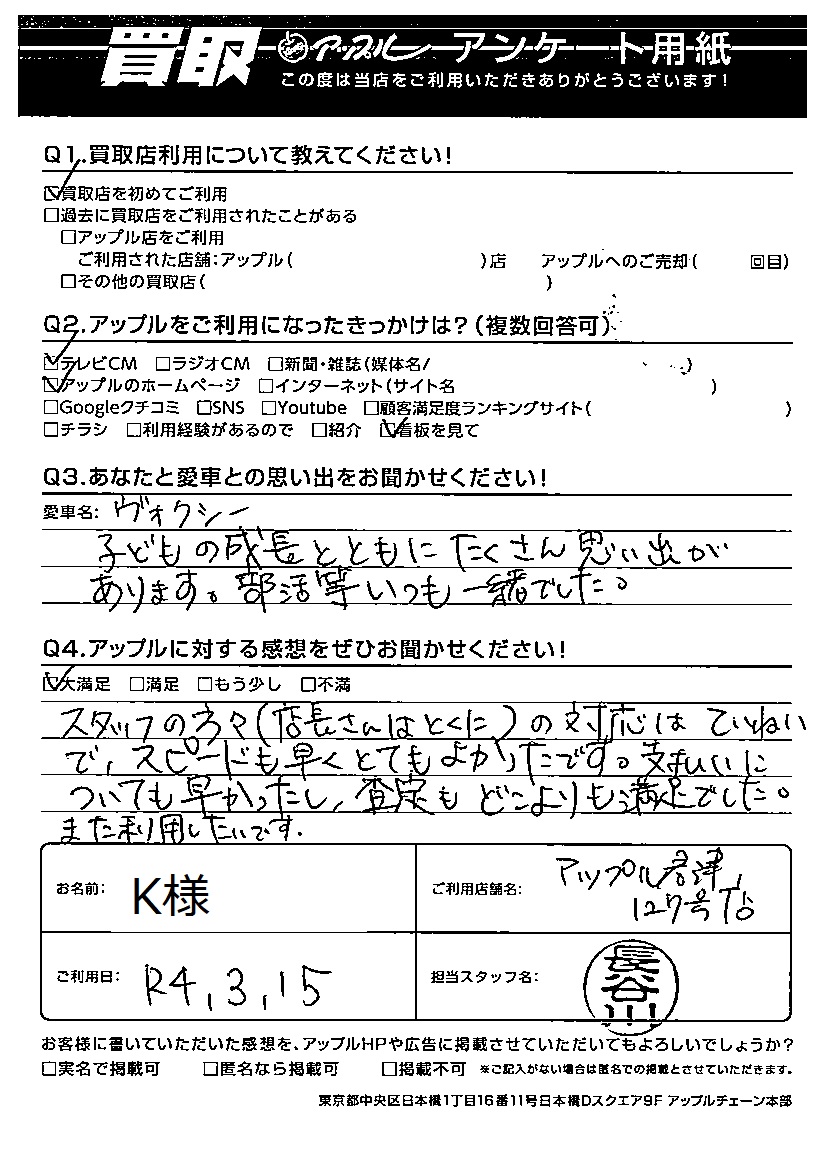 買取 アップル アンケート用紙
この度は当店をご利用いただきありがとうございます！
Q1.買取店利用について教えてください！
☑買取店を初めてご利用
□過去に買取店をご利用されたことがある
□アップル店をご利用
ご利用された店舗：アップル（ ）店 アップルへのご売却（ 回目）
□その他の買取店（ ）
Q2.アップルをご利用になったきっかけは？（複数回答可）
☑テレビCM □ラジオCM □新聞・雑誌（媒体名/ ）
☑アップルのホームページ □インターネット（サイト名 ）
□Googleクチコミ □SNS □Youtube □顧客満足度ランキングサイト（ ）
□チラシ □利用経験があるので □紹介 ☑看板を見て
Q3.あなたと愛車との思い出をお聞かせください！
愛車名： ヴォクシー
子どもの成長とともにたくさん思い出が
あります。部活等いつも一緒でした。
Q4.アップルに対する感想をぜひお聞かせください！
☑大満足 □満足 □もう少し □不満
スタッフの方々（店長さんはとくに）の対応はていねい
で、スピードも早くとてもよかったです。支払いに
ついても早かったし、査定もどこよりも満足でした。
また利用したいです.
お名前： K様
ご利用店舗名： アップル君津
127号店
ご利用日： R4,3,15
担当スタッフ名： 長谷川
お客様に書いていただいた感想を、アップルHPや広告に掲載させていただいてもよろしいでしょうか？
□実名で掲載可 □匿名なら掲載可 □掲載不可 ※ご記入がない場合は匿名での掲載とさせていただきます。
東京都中央区日本橋1丁目16番11号日本橋Dスクエア9F アップルチェーン本部